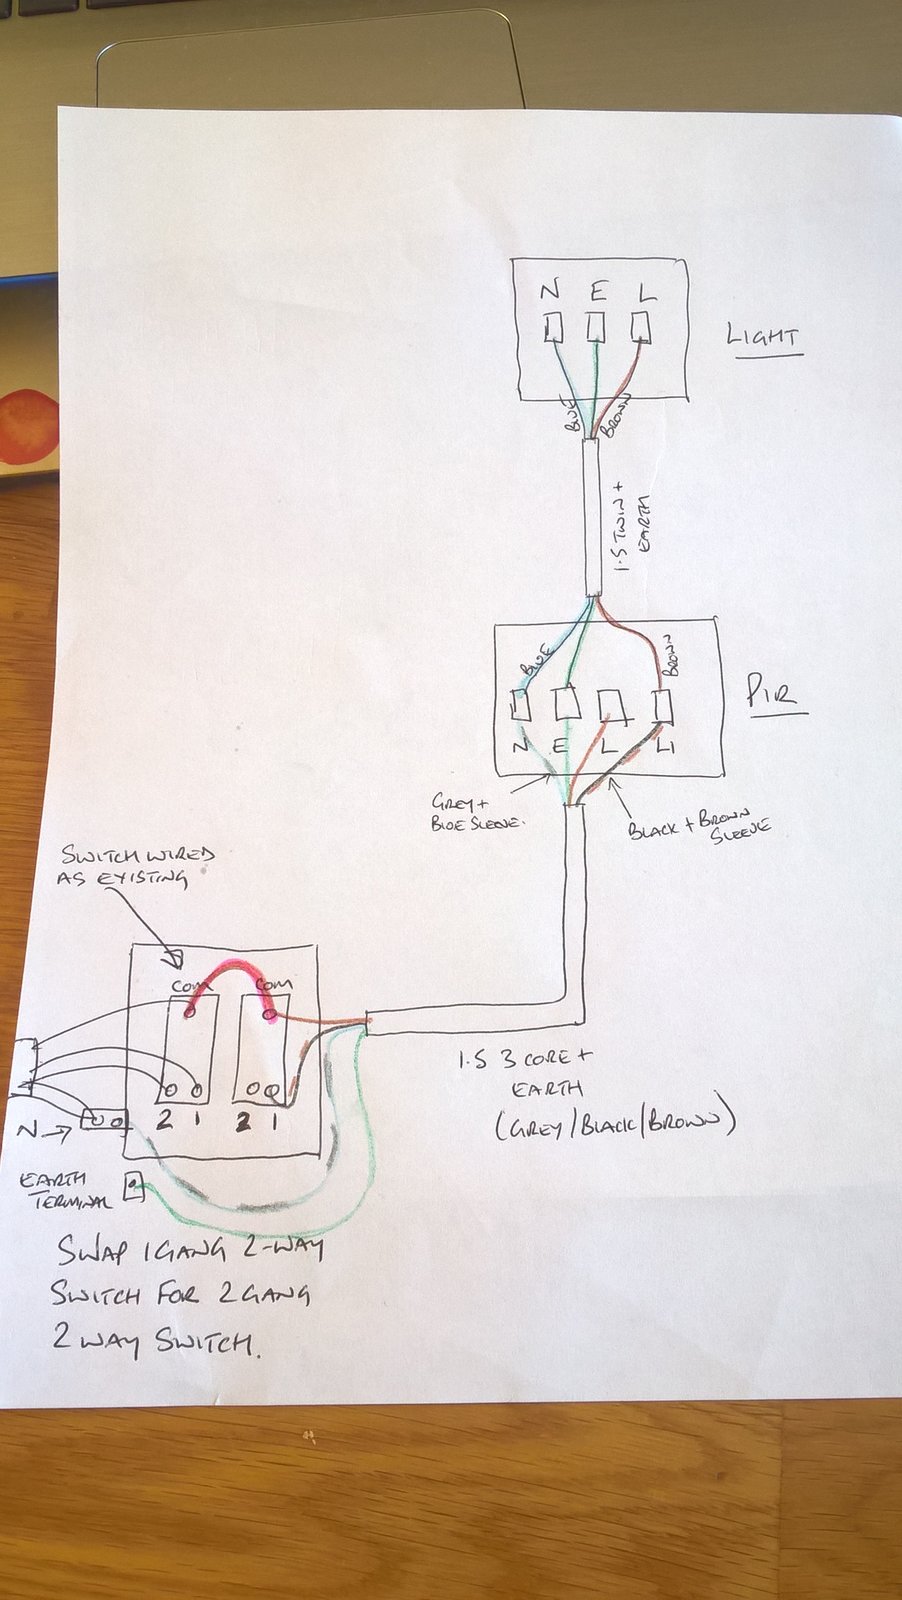 N E L
LIGHT
BLUE
BROWN
1.5 TWIN +
EARTH
BLUE
BROWN
PIR
N E L L1
GREY +
BLUE SLEEVE.
BLACK + BROWN
SLEEVE
SWITCH WIRED
AS EXISTING
COM COM
1.5 3 CORE +
EARTH
(GREY/BLACK/BROWN)
2 1 2 1
N
EARTH
TERMINAL
SWAP 1 GANG 2-WAY
SWITCH FOR 2 GANG
2 WAY SWITCH.